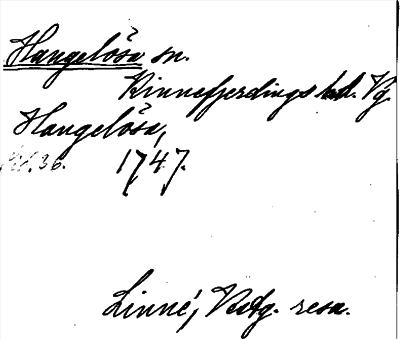 Hangelösa sn.
Kinnefjerdings hd. Vg.
Hangelösa,
s. 36. 1747.
Linné, Vestg. resa.